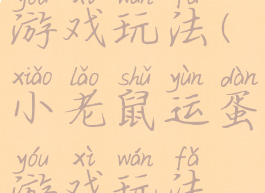 yóu xì wán fǎ
游戏玩法(
xiǎo lǎo shǔ yùn dàn
小老鼠运蛋
yóu xì wán fǎ
游戏玩法